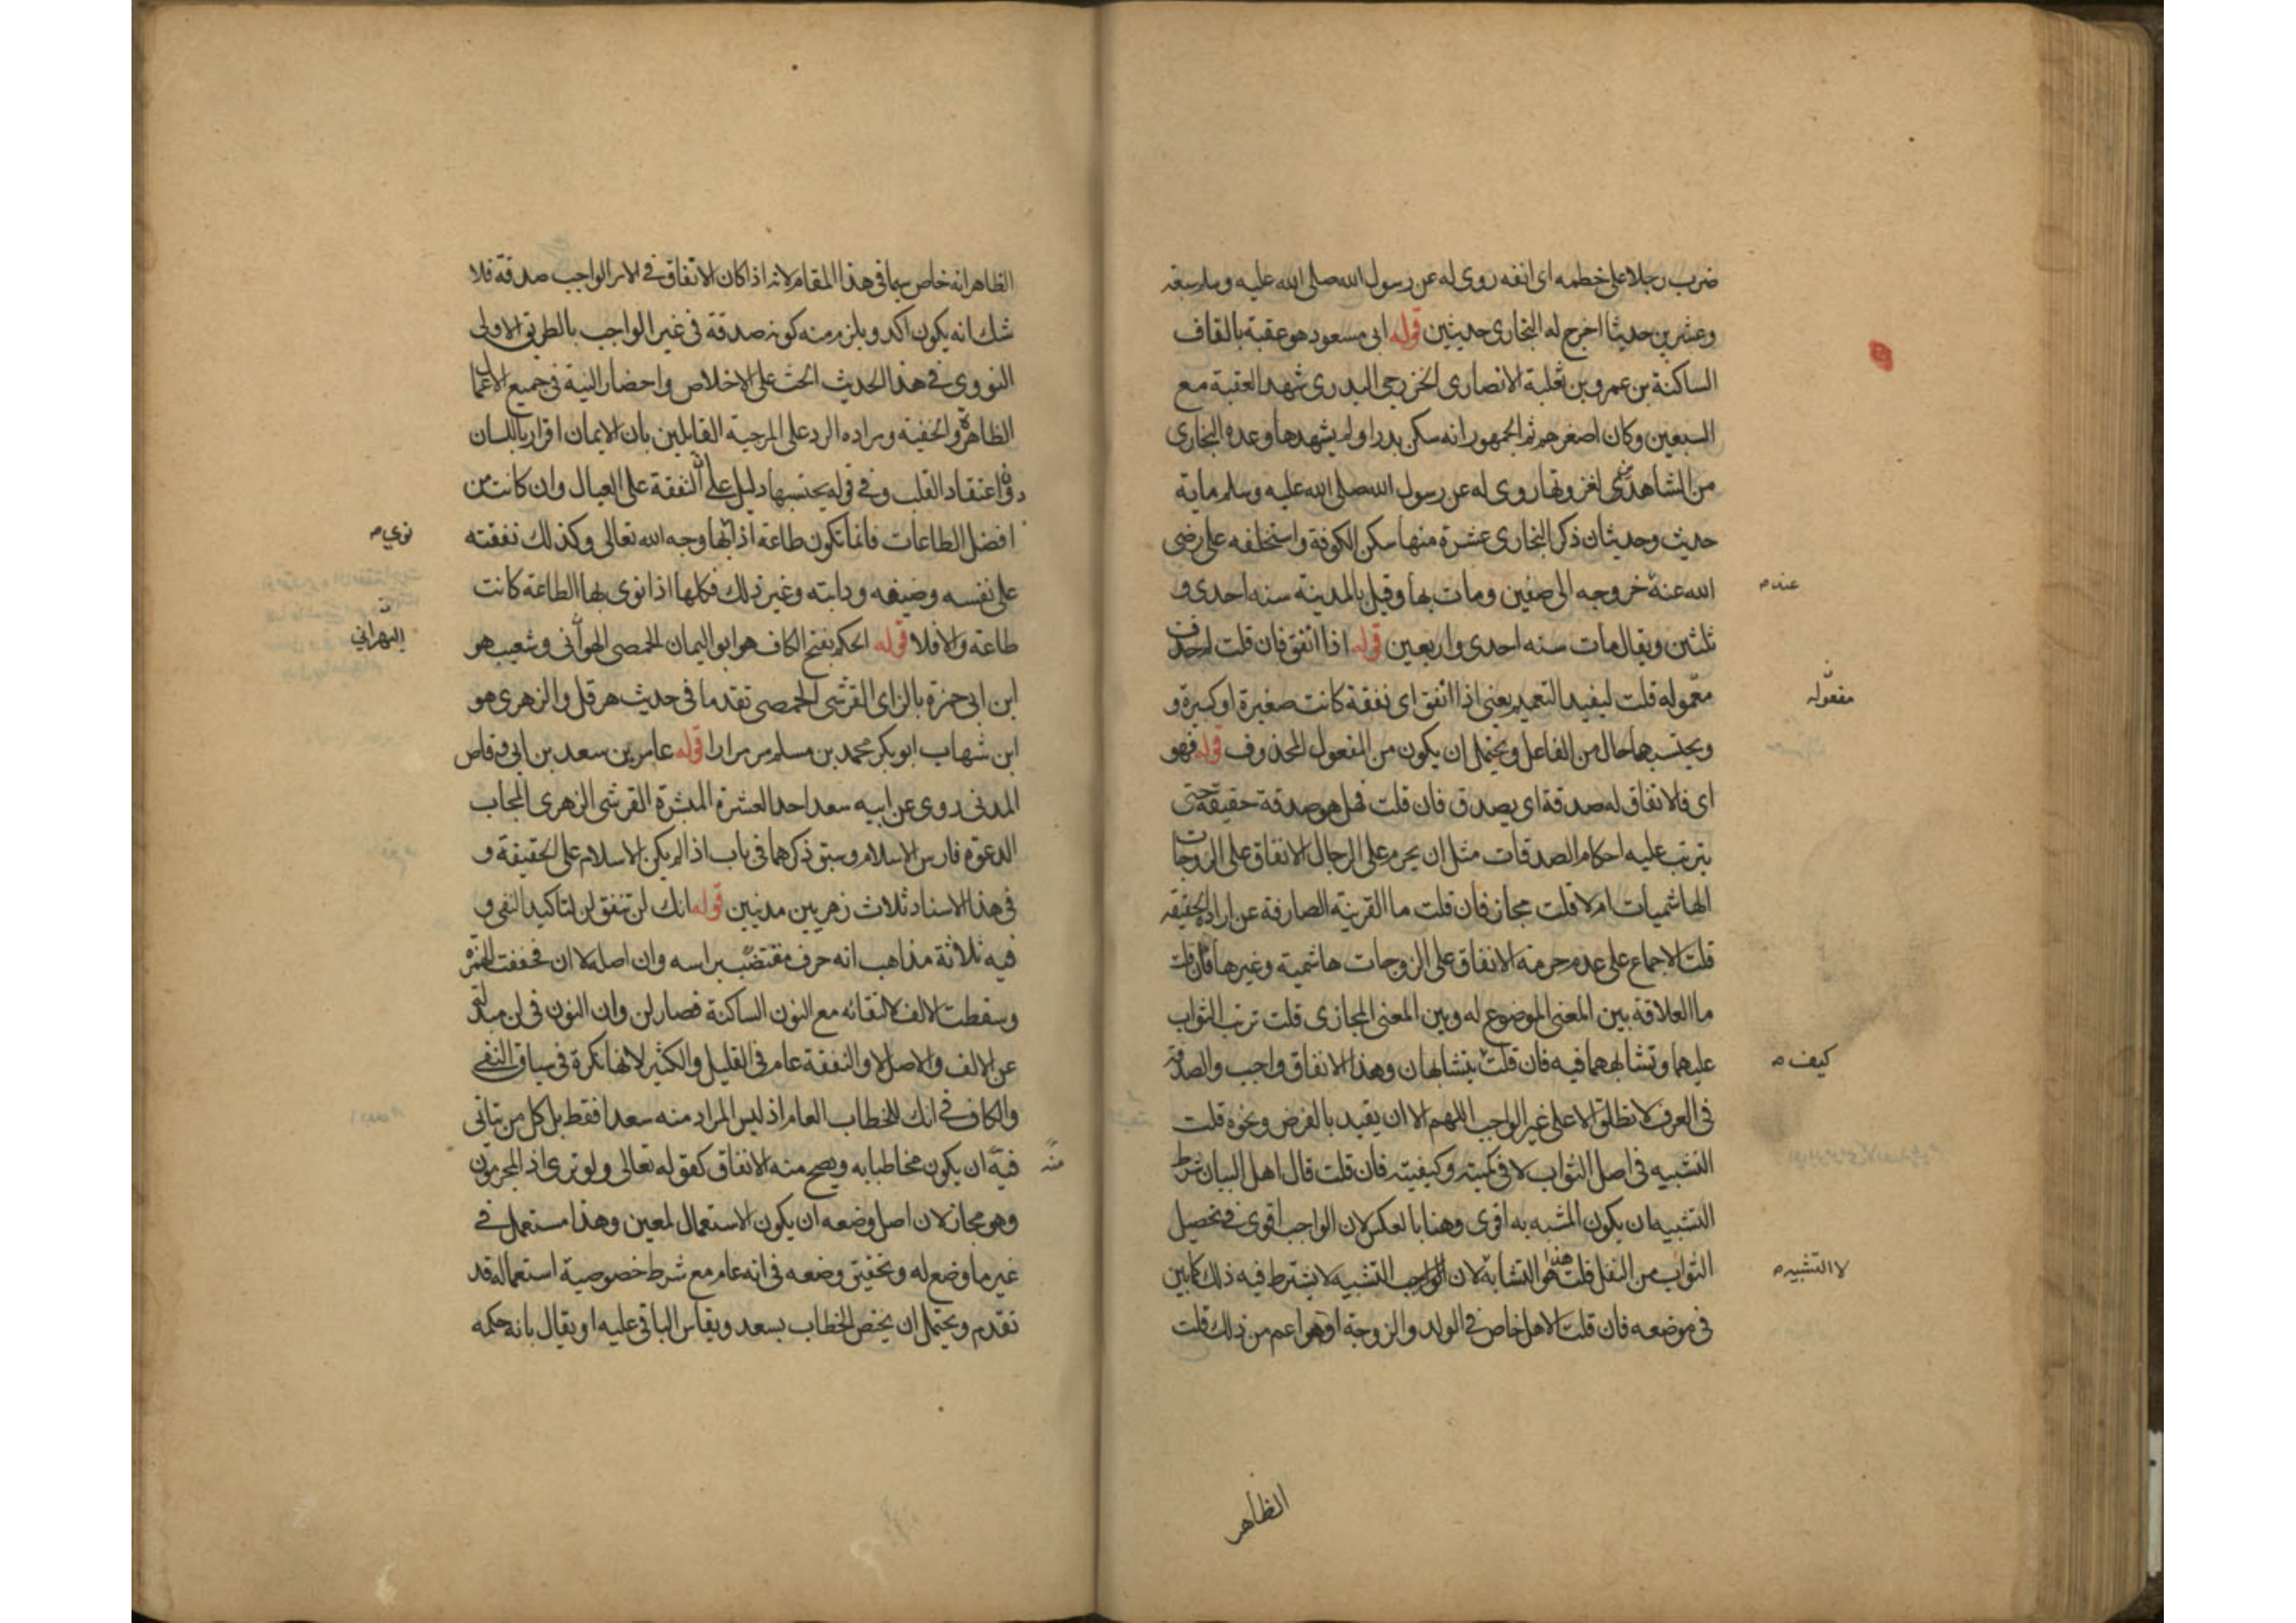 ضرب رجلا على خطمه اى انفه روى له عن رسول الله صلى الله عليه وسلم سبعة
وعشرين حديثا اخرج له البخارى حديثين قوله ابى مسعود هو عقبة بالقاف
الساكنة بن عمرو بن ثعلبة الانصارى الخزرجى البدرى شهد العقبة مع
السبعين وكان اصغرهم ثم الجمهور انه سكن بدرا ولم يشهدها وعده البخارى
من لغزوتها روى له عن رسول الله صلى الله عليه وسلم ماية
حديث وحديثان ذكر البخارى عشرة منها سكن الكوفة واستخلفه على رضى
الله عنه خروجه الى صفين ومات بها وقيل بالمدينة سنه احدى و
عنده
ثلثين ويقال مات سنه احدى واربعين قوله اذا انفق فان قلت لم حذف
معموله قلت ليفيد التعميم يعنى اذا انفق اى نفقة كانت صغيرة او كبيرة و
مفعوله
ويحتسبها حال من الفاعل ويحتمل ان يكون من المفعول المحذوف قوله فهو
اى فالانفاق له صدقة اى يصدق فان قلت فهل هو صدقة حقيقة حتى
يترتب عليه احكام الصدقات مثل ان يحرم على الرجال الانفاق على الزوجات
الهاشميات ام لا قلت مجاز فان قلت ما القرينة الصارفة عن ارادة الحقيقة
قلت الاجماع على عدم حرمة الانفاق على الزوجات هاشمية وغيرها فان قلت
ما العلاقة بين المعنى الموضوع له وبين المعنى المجازى قلت ترتب الثواب
عليهما وتشابههما فيه فان قلت يتشابهان وهذا الانفاق واجب والصدقة
كيف
فى العرف لا تطلق الا على غير الواجب اللهم الا ان يقيد بالفرض ونحوه قلت
التشبيه فى اصل الثواب لا فى كميته وكيفيته فان قلت قال اهل البيان شرط
التشبيه ان يكون المشبه به اقوى وهنا بالعكس لان الواجب اقوى فى تحصيل
الثواب من النفل قلت هذا هو التشابه لان التشبيه لا يشترط فيه ذلك كما بين
لا التشبيه
فى موضعه فان قلت الاهل خاص فى الولد والزوجة او هو اعم من ذلك قلت
الظاهر
الظاهر انه خاص سيما فى هذا المقام لانه اذا كان الانفاق فى الامر الواجب صدقة فلا
شك انه يكون اكد ويلزم منه كونه صدقة فى غير الواجب بالطريق الاولى
النووى فى هذا الحديث الحث على الاخلاص واحضار النية فى جميع الاعمال
الظاهرة والخفية ومراده الرد على المرجية القايلين بان الايمان اقرار باللسان
دون اعتقاد القلب وفى قوله يحتسبها دليل على ان النفقة على العيال وان كانت من
افضل الطاعات فانما تكون طاعة اذا بها وجه الله تعالى وكذلك نفقته
نوى
على نفسه وضيفه ودابته وغير ذلك فكلها اذا نوى بها الطاعة كانت
طاعة والا فلا قوله الحكم بفتح الكاف هو ابو اليمان الحمصى الهوانى وشعيب هو
البهرانى
ابن ابى حمزة بالزاى القرشى الحمصى تقدما فى حديث هرقل والزهرى هو
ابن شهاب ابو بكر محمد بن مسلم مر مرارا قوله عامر بن سعد بن ابى وقاص
المدنى روى عن ابيه سعد احد العشرة المبشرة القرشى الزهرى المجاب
الدعوة فارس الاسلام وسبق ذكرهما فى باب اذا لم يكن الاسلام على الحقيقة و
فى هذا الاسناد ثلاث زهريين مدنيين قوله انك لن تنفق لن لتاكيد النفى و
فيه ثلاثة مذاهب انه حرف مقتضب براسه وان اصله لا ان فخففت الهمزة
وسقطت الالف لالتقائه مع النون الساكنة فصار لن وان النون فى لن مبدلة
عن الالف والاصل لا والنفقة عام فى القليل والكثير لانها نكرة فى سياق النفى
والكاف فى انك للخطاب العام اذ ليس المراد منه سعدا فقط بل كل من يتاتى
فيه ان يكون مخاطبا به ويصح منه الانفاق كقوله تعالى ولو ترى اذ المجرمون
منه
وهو مجاز لان اصل وضعه ان يكون الاستعمال لمعين وهذا مستعمل فى
غير ما وضع له وتحقيق وضعه فى انه عام مع شرط خصوصية استعماله قد
تقدم ويحتمل ان يختص الخطاب بسعد ويقاس الباقى عليه او يقال بانه حكمه